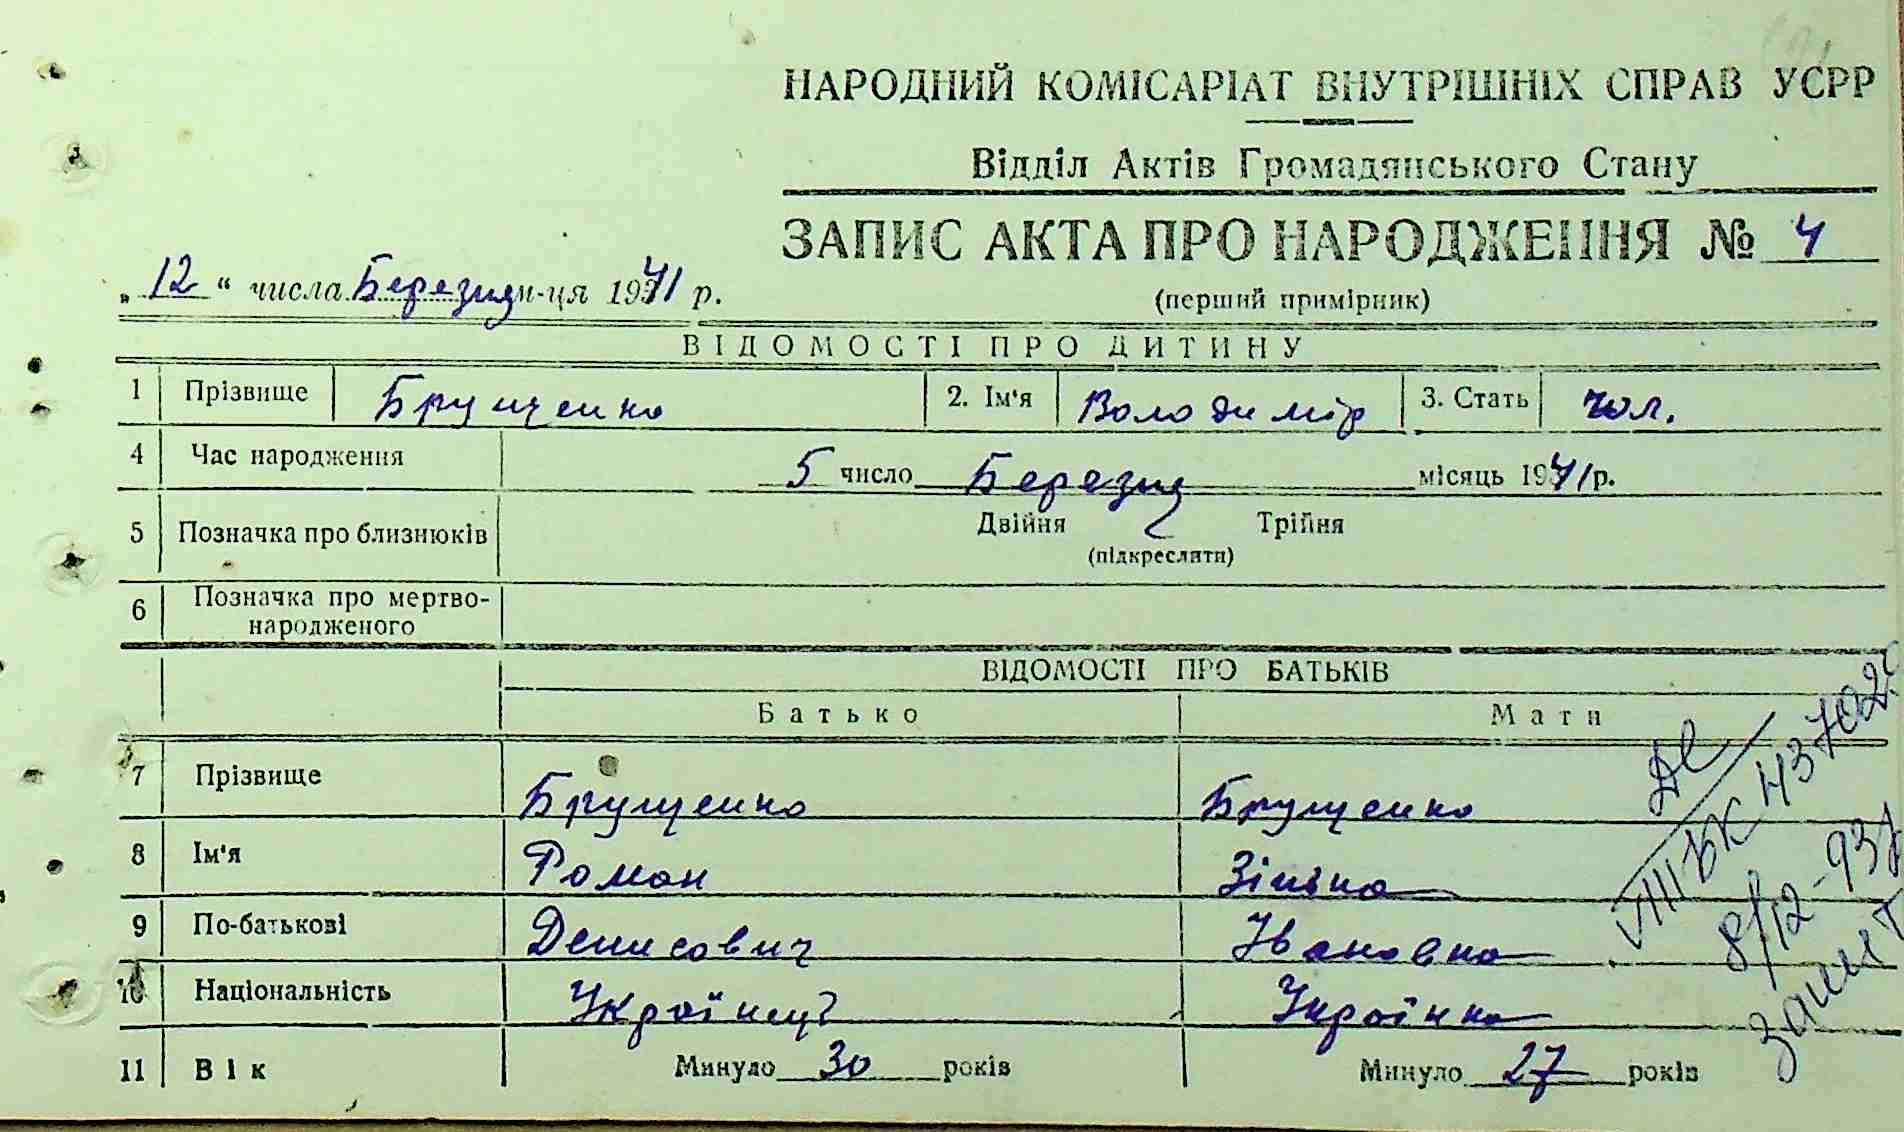 НАРОДНИЙ КОМІСАРІАТ ВНУТРІШНІХ СПРАВ УСРР
Відділ Актів Громадянського Стану
ЗАПИС АКТА ПРО НАРОДЖЕННЯ № 4
„12“ числа Березня м-ця 1941 р.
(перший примірник)
ВІДОМОСТІ ПРО ДИТИНУ
1 Прізвище Брущенко 2. Ім'я Володимір 3. Стать чол.
4 Час народження 5 число Березня місяць 1941 р.
5 Позначка про близнюків Двійня Трійня
(підкреслити)
6 Позначка про мертво-
народженого
ВІДОМОСТІ ПРО БАТЬКІВ
Батько Мати
7 Прізвище Брущенко Брущенко
8 Ім'я Роман Зінька
9 По-батькові Денисович Івановна
10 Національність Українець Українка
11 Вік Минуло 30 років Минуло 27 років
VIII БК 437029
8/12-93